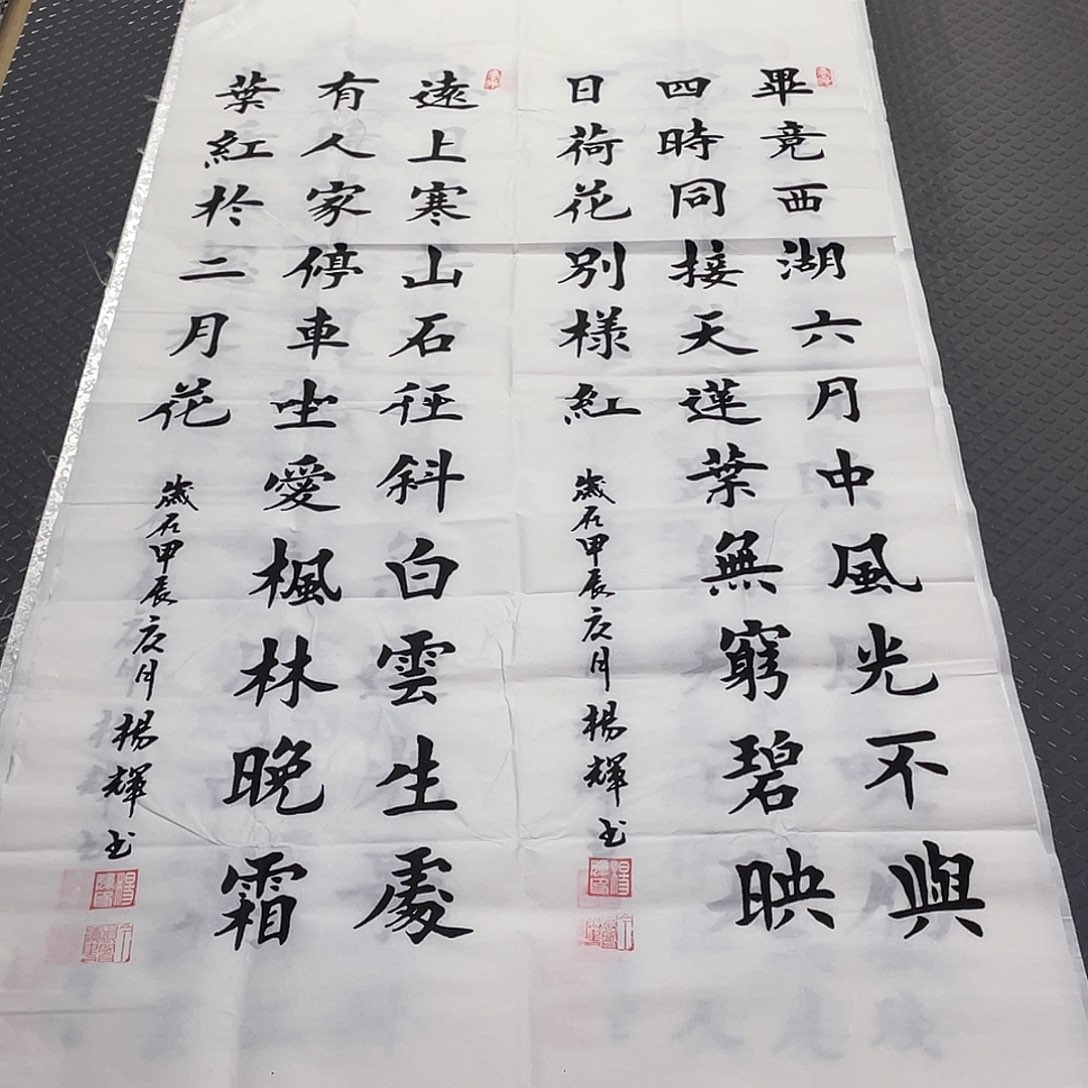 畢竟西湖六月中風光不與
四時同接天蓮葉無窮碧映
日荷花別樣紅
歲在甲辰庚月楊輝书
遠上寒山石徑斜白雲生處
有人家停車坐愛楓林晚霜
葉紅於二月花
歲在甲辰庚月楊輝书